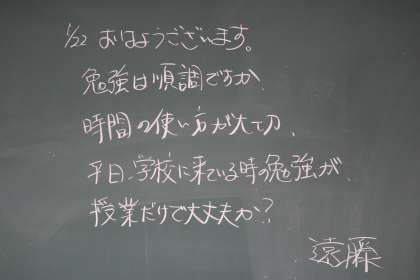 1/22 おはようございます。
勉強は順調ですか、
時間の使い方が大切、
平日、学校に来ている時の勉強が、
授業だけで大丈夫か?
遠藤